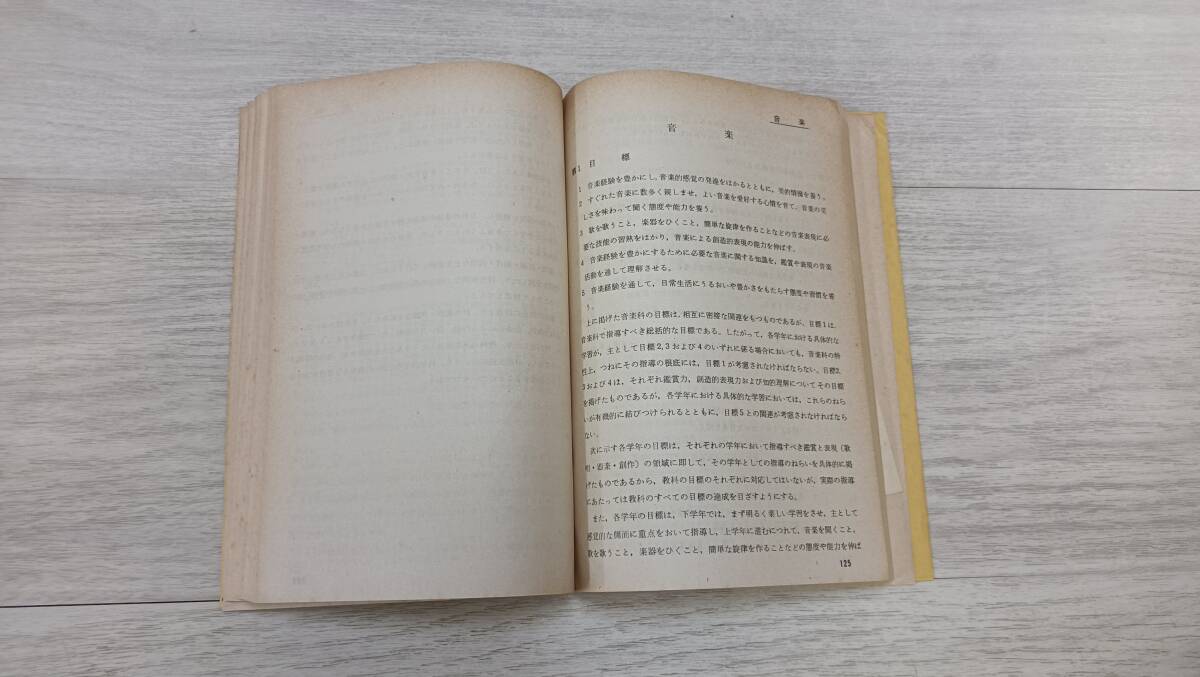 音　楽
音　楽
第1　目　標
1　音楽経験を豊かにし，音楽的感覚の発達をはかるとともに，美的情操を養う。
2　すぐれた音楽に数多く親しませ，よい音楽を愛好する心情を育て，音楽の美
しさを味わって聞く態度や能力を養う。
3　歌を歌うこと，楽器をひくこと，簡単な旋律を作ることなどの音楽表現に必
要な技能の習熟をはかり，音楽による創造的表現の能力を伸ばす。
4　音楽経験を豊かにするために必要な音楽に関する知識を，鑑賞や表現の音楽
活動を通して理解させる。
5　音楽経験を通して，日常生活にうるおいや豊かさをもたらす態度や習慣を養
う。
上に掲げた音楽科の目標は，相互に密接な関連をもつものであるが，目標1は，
音楽科で指導すべき総括的な目標である。したがって，各学年における具体的な
学習が，主として目標2，3および4のいずれに係る場合においても，音楽科の特
性上，つねにその指導の根底には，目標1が考慮されなければならない。目標2，
3および4は，それぞれ鑑賞力，創造的表現力および知的理解についてその目標
を掲げたものであるが，各学年における具体的な学習においては，これらのねら
いが有機的に結びつけられるとともに，目標5との関連が考慮されなければなら
ない。
次に示す各学年の目標は，それぞれの学年において指導すべき鑑賞と表現（歌
唱・器楽・創作）の領域に即して，その学年としての指導のねらいを具体的に掲
げたものであるから，教科の目標のそれぞれに対応してはいないが，実際の指導
にあたっては教科のすべての目標の達成を目ざすようにする。
また，各学年の目標は，下学年では，まず明るく楽しい学習をさせ，主として
感覚的な側面に重点をおいて指導し，上学年に進むにつれて，音楽を聞くこと，
歌を歌うこと，楽器をひくこと，簡単な旋律を作ることなどの態度や能力を伸ば
125